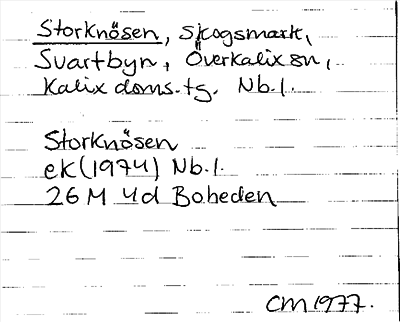 Storknösen, skogsmark,
Svartbyn, Överkalix sn,
Kalix doms.tg. Nb.l.
Storknösen
ek(1974) Nb.l.
26 M 4d Boheden
CM 1977.